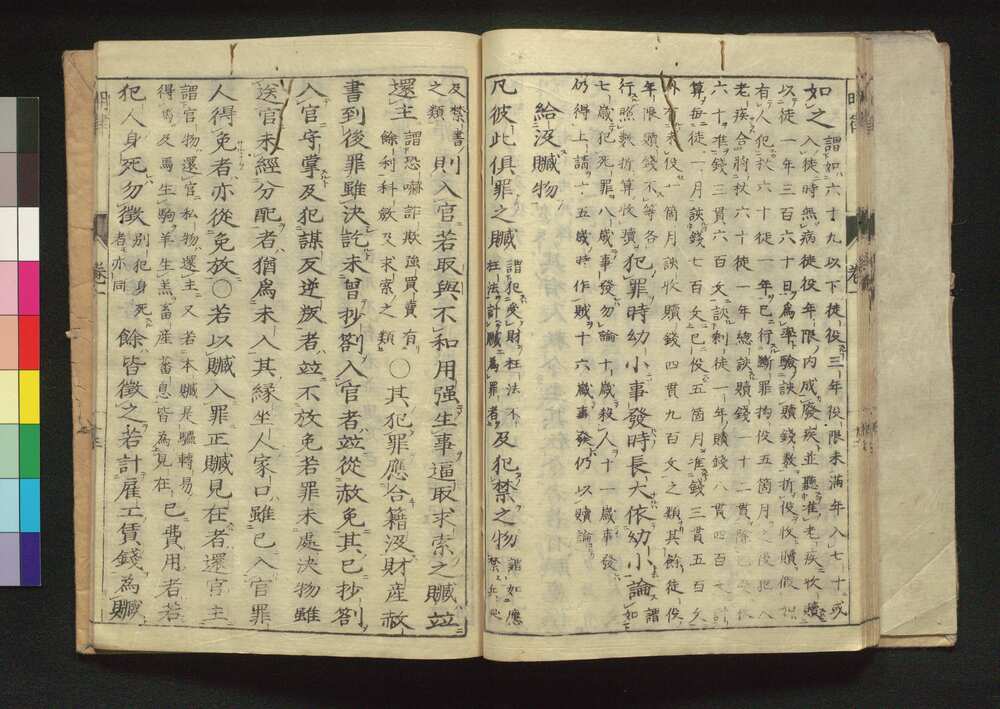 如之謂如六十九以下徒役三年役限未滿年入七十或
入徒時無病徒役年限內成廢疾並聽准老疾收贖
以徒一年三百六十日爲率驗該贖錢數折役收贖假如
有人犯杖六十徒一年已行斷罪拘役五箇月之後犯人
老疾合將杖六十徒一年總該贖錢一十二貫除已受杖
六十准錢三貫六百文該剩徒一年贖錢八貫四百文計
算每徒一月該錢七百文已役五箇月准錢三貫五百文
外有未役七箇月該收贖錢四貫九百文之類其餘徒役
年限贖錢不等各行照數折算收贖犯罪時幼小事發時長大依幼小論謂如
七歲犯死罪八歲事發勿論十歲殺人十一歲事發
仍得上請十五歲時作賊十六歲事發仍以贖論
給沒贓物
凡彼此俱罪之贓謂犯受財枉法不枉法計贓爲罪者及犯禁之物謂如應禁兵器
及禁書之類則入官若取與不和用强生事逼取求索之贓竝
還主謂恐嚇詐欺強買賣有餘利科斂及求索之類○其犯罪應合籍沒財産赦
書到後罪雖決訖未曾抄劄入官者竝從赦免其已抄劄
入官守掌及犯謀反逆叛者竝不放免若罪未處決物雖
送官未經分配者猶爲未入其縁坐人家口雖已入官罪
人得免者亦從免放○若以贓入罪正贓見在者還官主
謂官物還官私物還主又若本贓是驢轉易得馬及馬生駒羊生羔畜産蕃息皆爲見在已費用者若
犯人身死勿徵別犯身死者亦同餘皆徵之若計雇工賃錢爲贓
明律
卷一